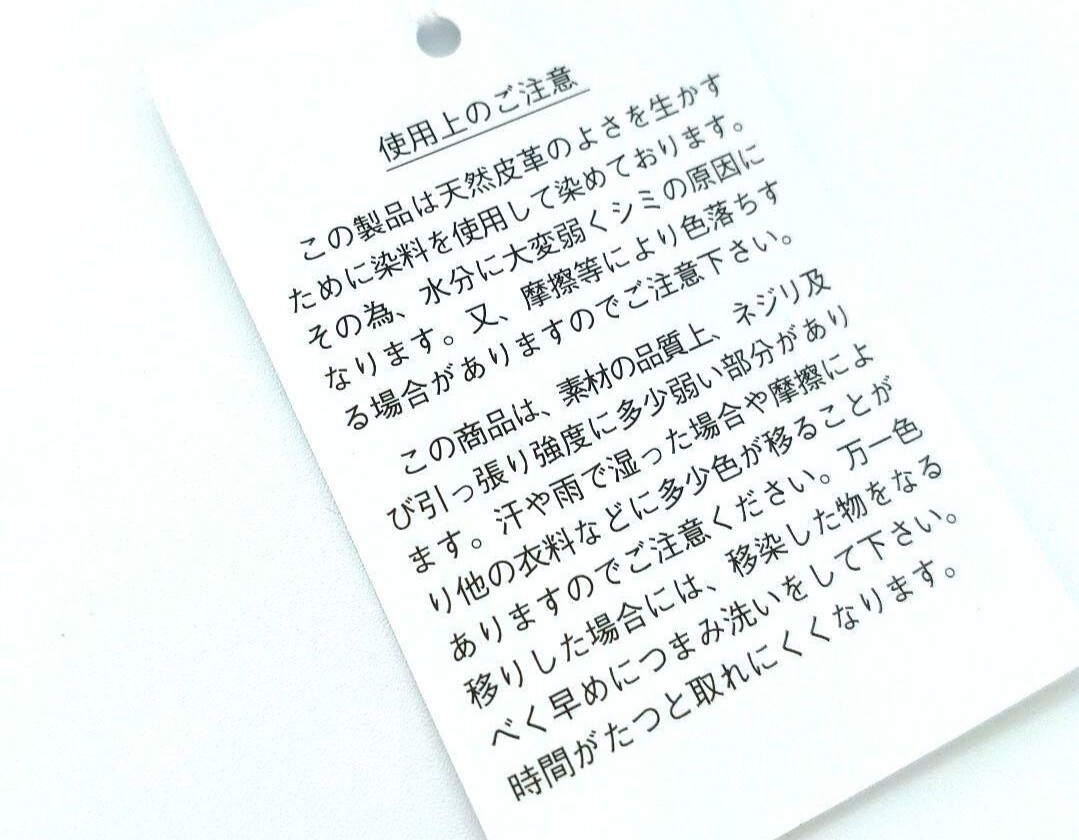 使用上のご注意
この製品は天然皮革のよさを生かす
ために染料を使用して染めております。
その為、水分に大変弱くシミの原因に
なります。又、摩擦等により色落ちす
る場合がありますのでご注意下さい。
この商品は、素材の品質上、ネジリ及
び引っ張り強度に多少弱い部分があり
ます。汗や雨で湿った場合や摩擦によ
り他の衣料などに多少色が移ることが
ありますのでご注意ください。万一色
移りした場合には、移染した物をなる
べく早めにつまみ洗いをして下さい。
時間がたつと取れにくくなります。